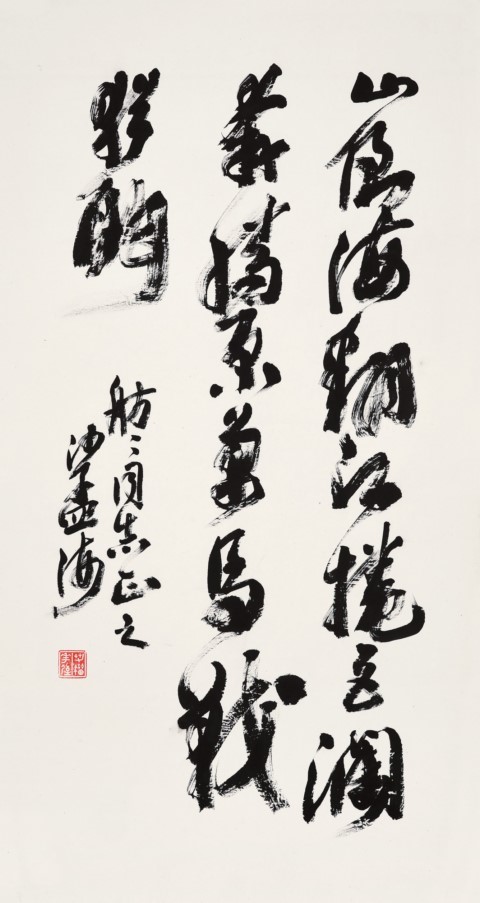 山倒海翻江捲巨瀾
奔騰急萬馬戰
猶酣
舫〻同志正之
沙孟海